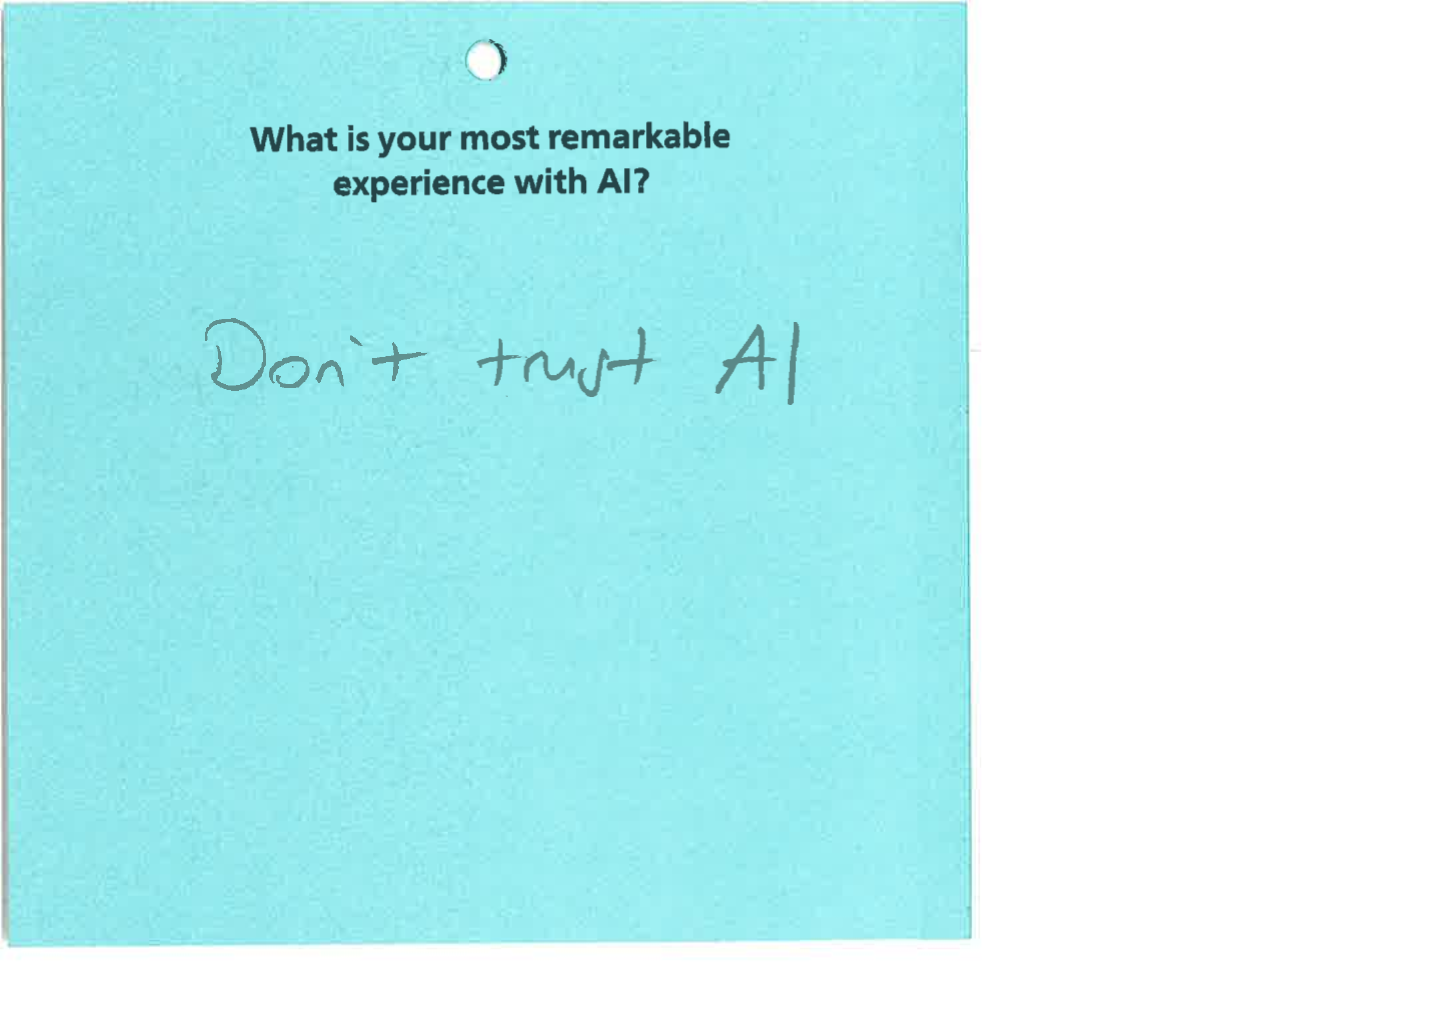 What is your most remarkable
experience with AI?
Don't trust AI